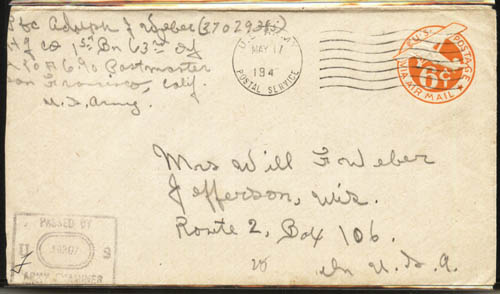 Pfc Adolph J Weber (37029
Hq Co 1st Bn 63rd Inf
A.P.O. # 6 % Postmaster
San Francisco, Calif.
U.S. Army.
U.S. ARMY
MAY 17
194
POSTAL SERVICE
U.S. POSTAGE
6¢
VIA AIR MAIL
Mrs Will F Weber
Jefferson, Wis.
Route 2, Box 106.
In U.S.A.
PASSED BY
U S
ARMY EXAMINER